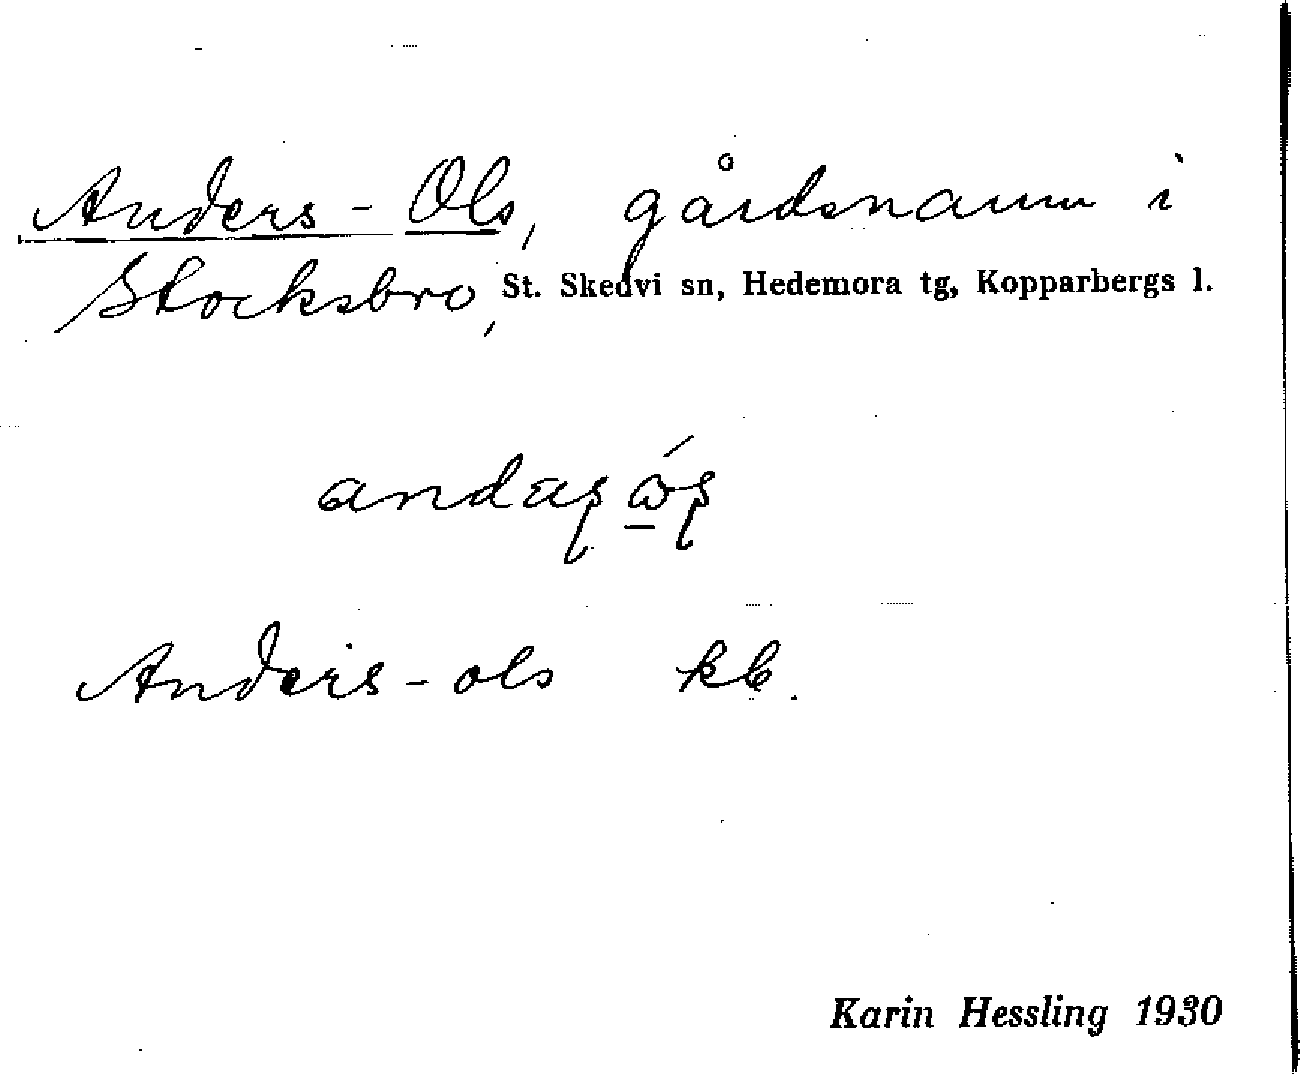 Anders-Ols, gårdsnamn i
Stocksbro, St. Skedvi sn, Hedemora tg, Kopparbergs l.
Anders-ols kb.
Karin Hessling 1930